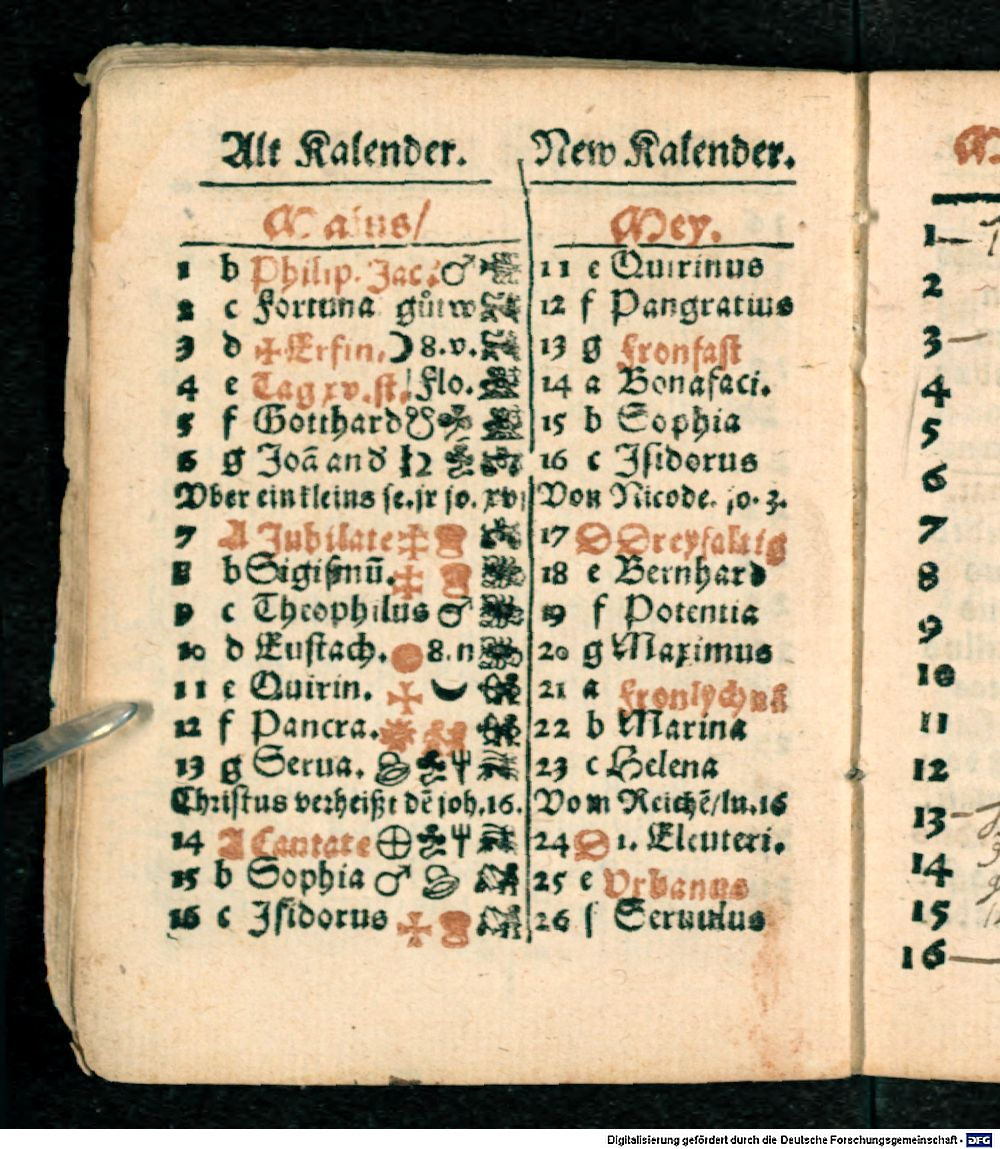 Alt Kalender. New Kalender.
Maius/ Mey.
1 b Philip. Jac. ♂ 11 e Quirinus
2 c Fortuna gůtw 12 f Pangratius
3 d ✠ Erfin. ☽ 8.v. 13 g Fronfast
4 e Tag xv.st. Flo. 14 a Bonafaci.
5 f Gotthard 15 b Sophia
6 g Joã and 12 16 c Isidorus
Vber ein kleins se. jr jo. xv Von Nicode. jo. 3.
7 A Jubilate 17 D Dreyfaltig
8 b Sigismū. 18 e Bernhard
9 c Theophilus ♂ 19 f Potentia
10 d Eustach. 8.n 20 g Maximus
11 e Quirin. 21 a Fronlychnā
12 f Pancra. 22 b Marina
13 g Serua. 23 c Helena
Christus verheißt dē joh. 16. Vom Reichē/lu. 16
14 A Cantate ⊕ 24 D 1. Eleuteri.
15 b Sophia ♂ 25 e Vrbanus
16 c Isidorus 26 f Seruulus
1
2
3
4
5
6
7
8
9
10
11
12
13
14
15
16
Digitalisierung gefördert durch die Deutsche Forschungsgemeinschaft - DFG